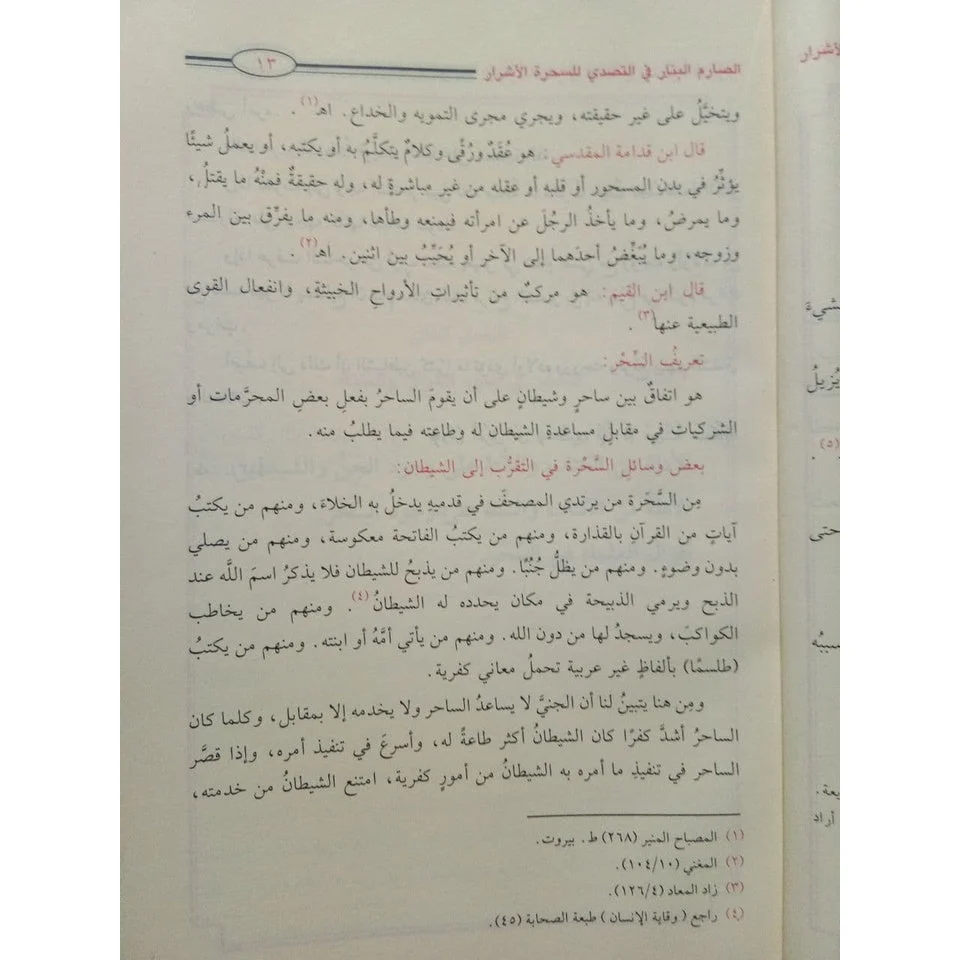 الصارم البتار في التصدي للسحرة الأشرار
١٣
ويتخيَّلُ على غير حقيقته، ويجري مجرى التمويه والخداع. اهـ(١).
قال ابن قدامة المقدسي: هو عُقَدٌ ورُقًى وكلامٌ يتكلَّمُ به أو يكتبه، أو يعملُ شيئًا
يؤثِّرُ في بدنِ المسحور أو قلبه أو عقله من غير مباشرةٍ له، وله حقيقةٌ فمنْهُ ما يقتلُ،
وما يمرضُ، وما يأخذُ الرجُلَ عن امرأته فيمنعه وطأها، ومنه ما يفرِّق بين المرء
وزوجه، وما يُبَغِّضُ أحدَهما إلى الآخر أو يُحَبِّبُ بين اثنين. اهـ(٢).
قال ابن القيم: هو مركبٌ من تأثيراتِ الأرواحِ الخبيثةِ، وانفعال القوى
الطبيعية عنها(٣).
تعريفُ السِّحْر:
هو اتفاقٌ بين ساحرٍ وشيطانٍ على أن يقومَ الساحرُ بفعلِ بعضِ المحرَّمات أو
الشركيات في مقابلِ مساعدةِ الشيطان له وطاعته فيما يطلبُ منه.
بعض وسائلِ السَّحْرة في التقرُّب إلى الشيطان:
مِن السَّحَرة من يرتدي المصحفَ في قدميهِ يدخلُ به الخلاءَ، ومنهم من يكتبُ
آياتٍ من القرآنِ بالقذارة، ومنهم من يكتبُ الفاتحة معكوسة، ومنهم من يصلي
بدون وضوءٍ. ومنهم من يظلُّ جُنُبًا. ومنهم من يذبحُ للشيطان فلا يذكرُ اسمَ اللَّه عند
الذبح ويرمي الذبيحة في مكان يحدده له الشيطانُ(٤). ومنهم من يخاطب
الكواكبَ، ويسجدُ لها من دون الله. ومنهم من يأتي أمَّهُ أو ابنته. ومنهم من يكتبُ
(طلسمًا) بألفاظٍ غير عربية تحملُ معاني كفرية.
ومِن هنا يتبينُ لنا أن الجنيَّ لا يساعدُ الساحر ولا يخدمه إلا بمقابل، وكلما كان
الساحرُ أشدَّ كفرًا كان الشيطانُ أكثر طاعةً له، وأسرعَ في تنفيذ أمره، وإذا قصَّر
الساحر في تنفيذِ ما أمره به الشيطانُ من أمورٍ كفرية، امتنع الشيطانُ من خدمته،
(١) المصباح المنير (٢٦٨) ط. بيروت.
(٢) المغني (١٠٤/١٠).
(٣) زاد المعاد (١٢٦/٤).
(٤) راجع (وقاية الإنسان) طبعة الصحابة (٤٥).
يُزيلُ
(٥)
حتى
أراد